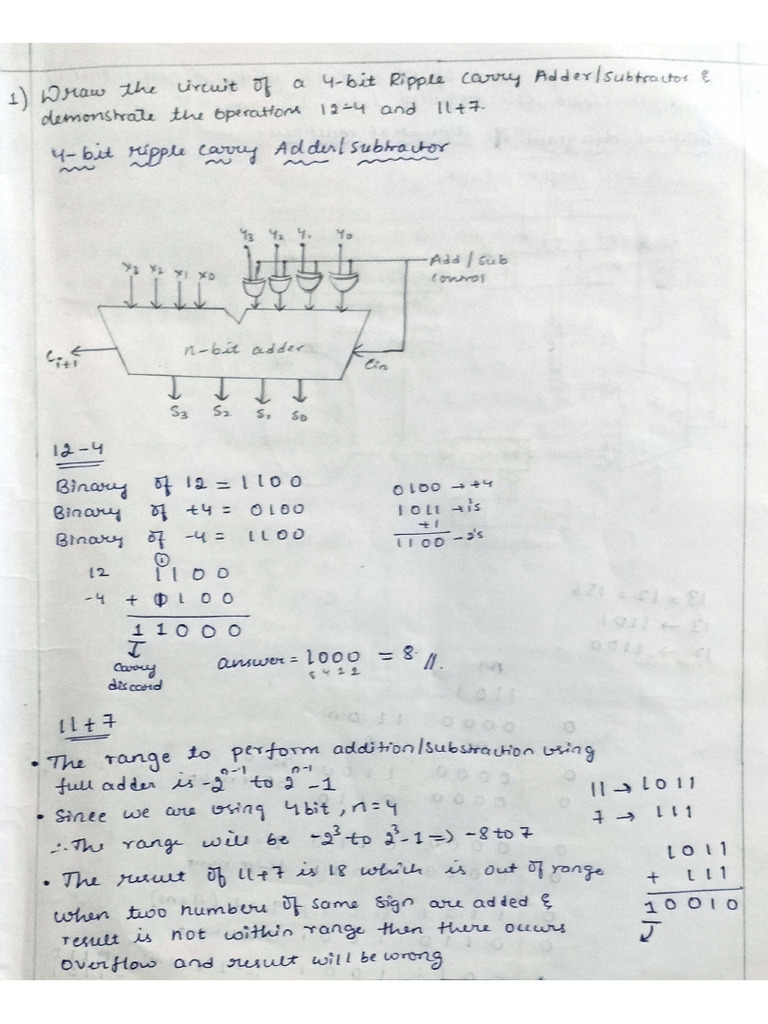 1) Draw the circuit of a 4-bit Ripple Carry Adder/Subtractor &
demonstrate the operations 12-4 and 11+7.
4-bit ripple carry Adder/Subtractor
y3 y2 y1 y0
Add/Sub
control
x3 x2 x1 x0
n-bit adder
Ci+1
Cin
S3 S2 S1 S0
12-4
Binary of 12 = 1100
Binary of +4 = 0100
Binary of -4 = 1100
0100 → +4
1011 → 1's
+1
1100 - 2's
①
12 1100
-4 + 1100
11000
Carry
discard
answer = 1000 = 8 //.
11+7
• The range to perform addition/substraction using
full adder is -2^n-1 to 2^n-1 - 1
• Since we are using 4bit, n=4
∴ The range will be -2^3 to 2^3-1 => -8 to 7
• The result of 11+7 is 18 which is out of range
when two numbers of same sign are added &
result is not within range then there occurs
overflow and result will be wrong
11 → 1011
7 → 111
1011
+ 111
10010